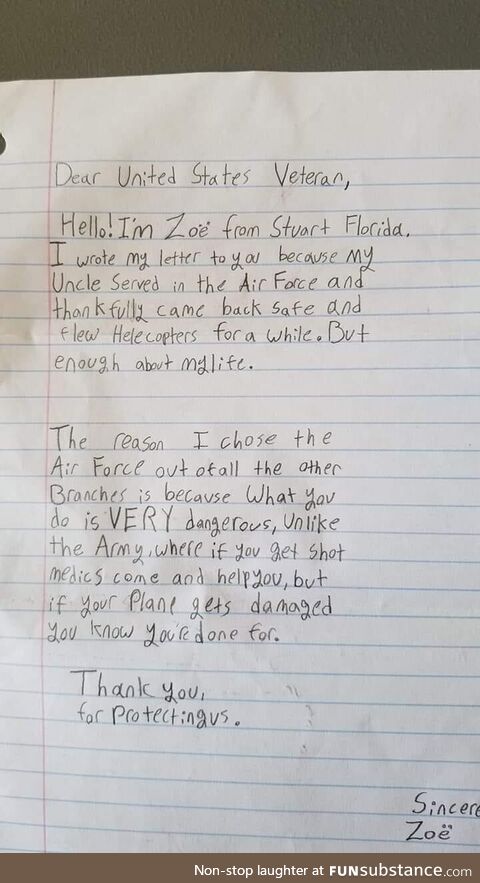 Dear United States Veteran,
Hello! I'm Zoë from Stuart Florida.
I wrote my letter to you because my
Uncle Served in the Air Force and
thankfully came back safe and
flew Helecopters for a while. But
enough about my life.
The reason I chose the
Air Force out of all the other
Branches is because What you
do is VERY dangerous, Unlike
the Army, where if you get shot
medics come and help you, but
if your Plane gets damaged
you know you're done for.
Thank you,
for Protecting us.
Sincere
Zoë
Non-stop laughter at FUNsubstance.com